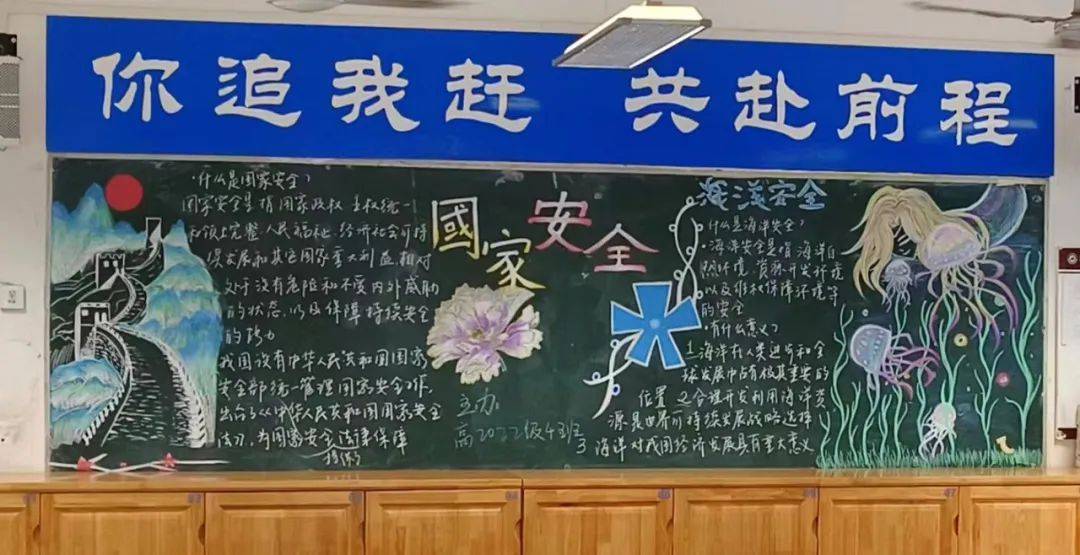 你追我赶 共赴前程
·什么是国家安全?
国家安全是指国家政权 主权统一
和领土完整 人民福祉 经济社会可持
续发展和其它国家重大利益相对
处于没有危险和不受内外威胁
的状态,以及保障持续安全
的能力
我国设有中华人民共和国国家
安全部统一管理国家安全工作,
出台了《中华人民共和国国家安全
法》,为国家安全法律保障
提供了
國家安全
主办
高2022级4班
海洋安全
·什么是海洋安全?
·海洋安全是指海洋自
然环境、资源开发环境
以及维权保障环境等
的安全
·有什么意义?
1.海洋在人类进步和全
球发展中占有极其重要的
位置 2.合理开发利用海洋资
源是世界可持续发展战略选择
3 海洋对我国经济发展具有重大意义